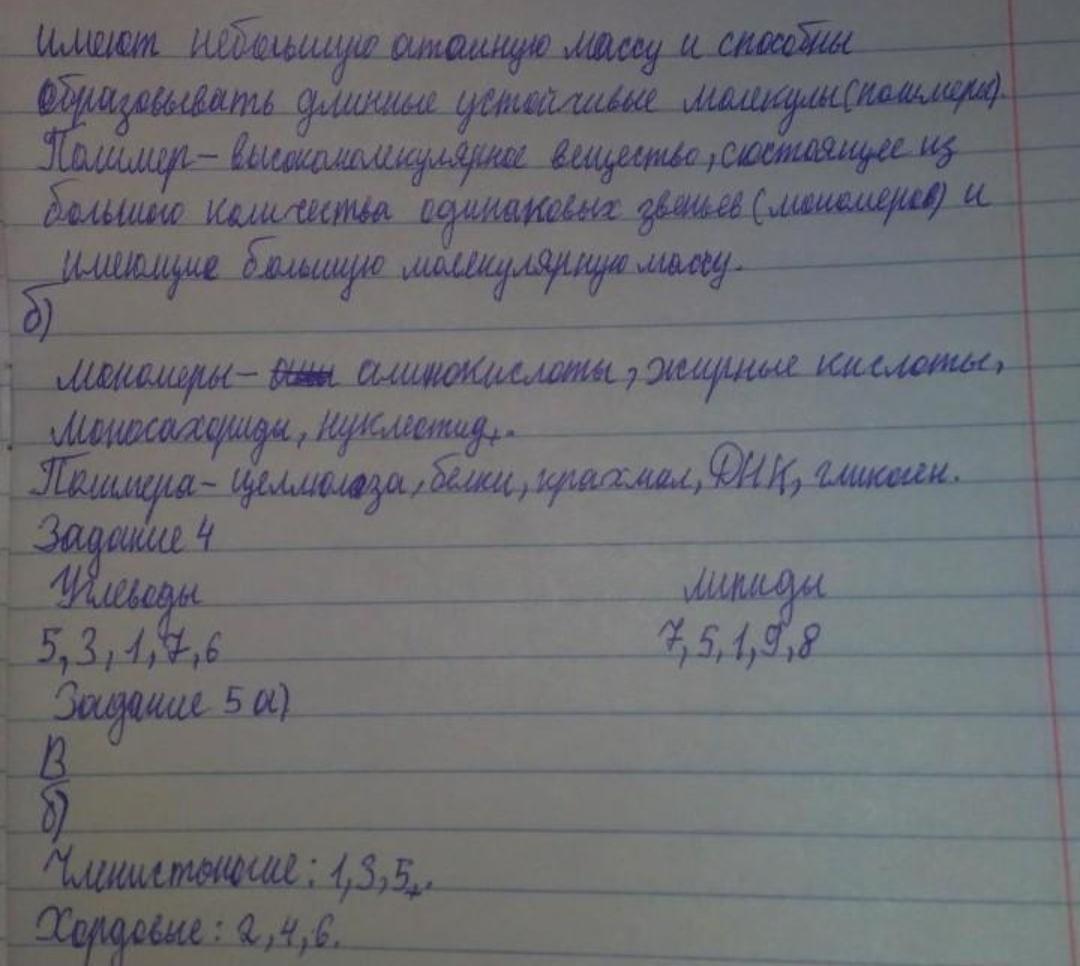 имеют небольшую атомную массу и способны
образовывать длинные устойчивые молекулы(полимеры)
Полимер - высокомолекулярное вещество, состоящее из
большого количества одинаковых звеньев (мономеров) и
имеющие большую молекулярную массу.
б)
Мономеры - аминокислоты, жирные кислоты,
моносахориды, нуклеотид.
Полимера - целлюлоза, белки, крахмал, ДНК, гликоген.
Задание 4
Углеводы липиды
5, 3, 1, 7, 6 7, 5, 1, 9, 8
Задание 5 а)
В
б)
Членистоногие: 1, 3, 5.
Хордовые: 2, 4, 6.